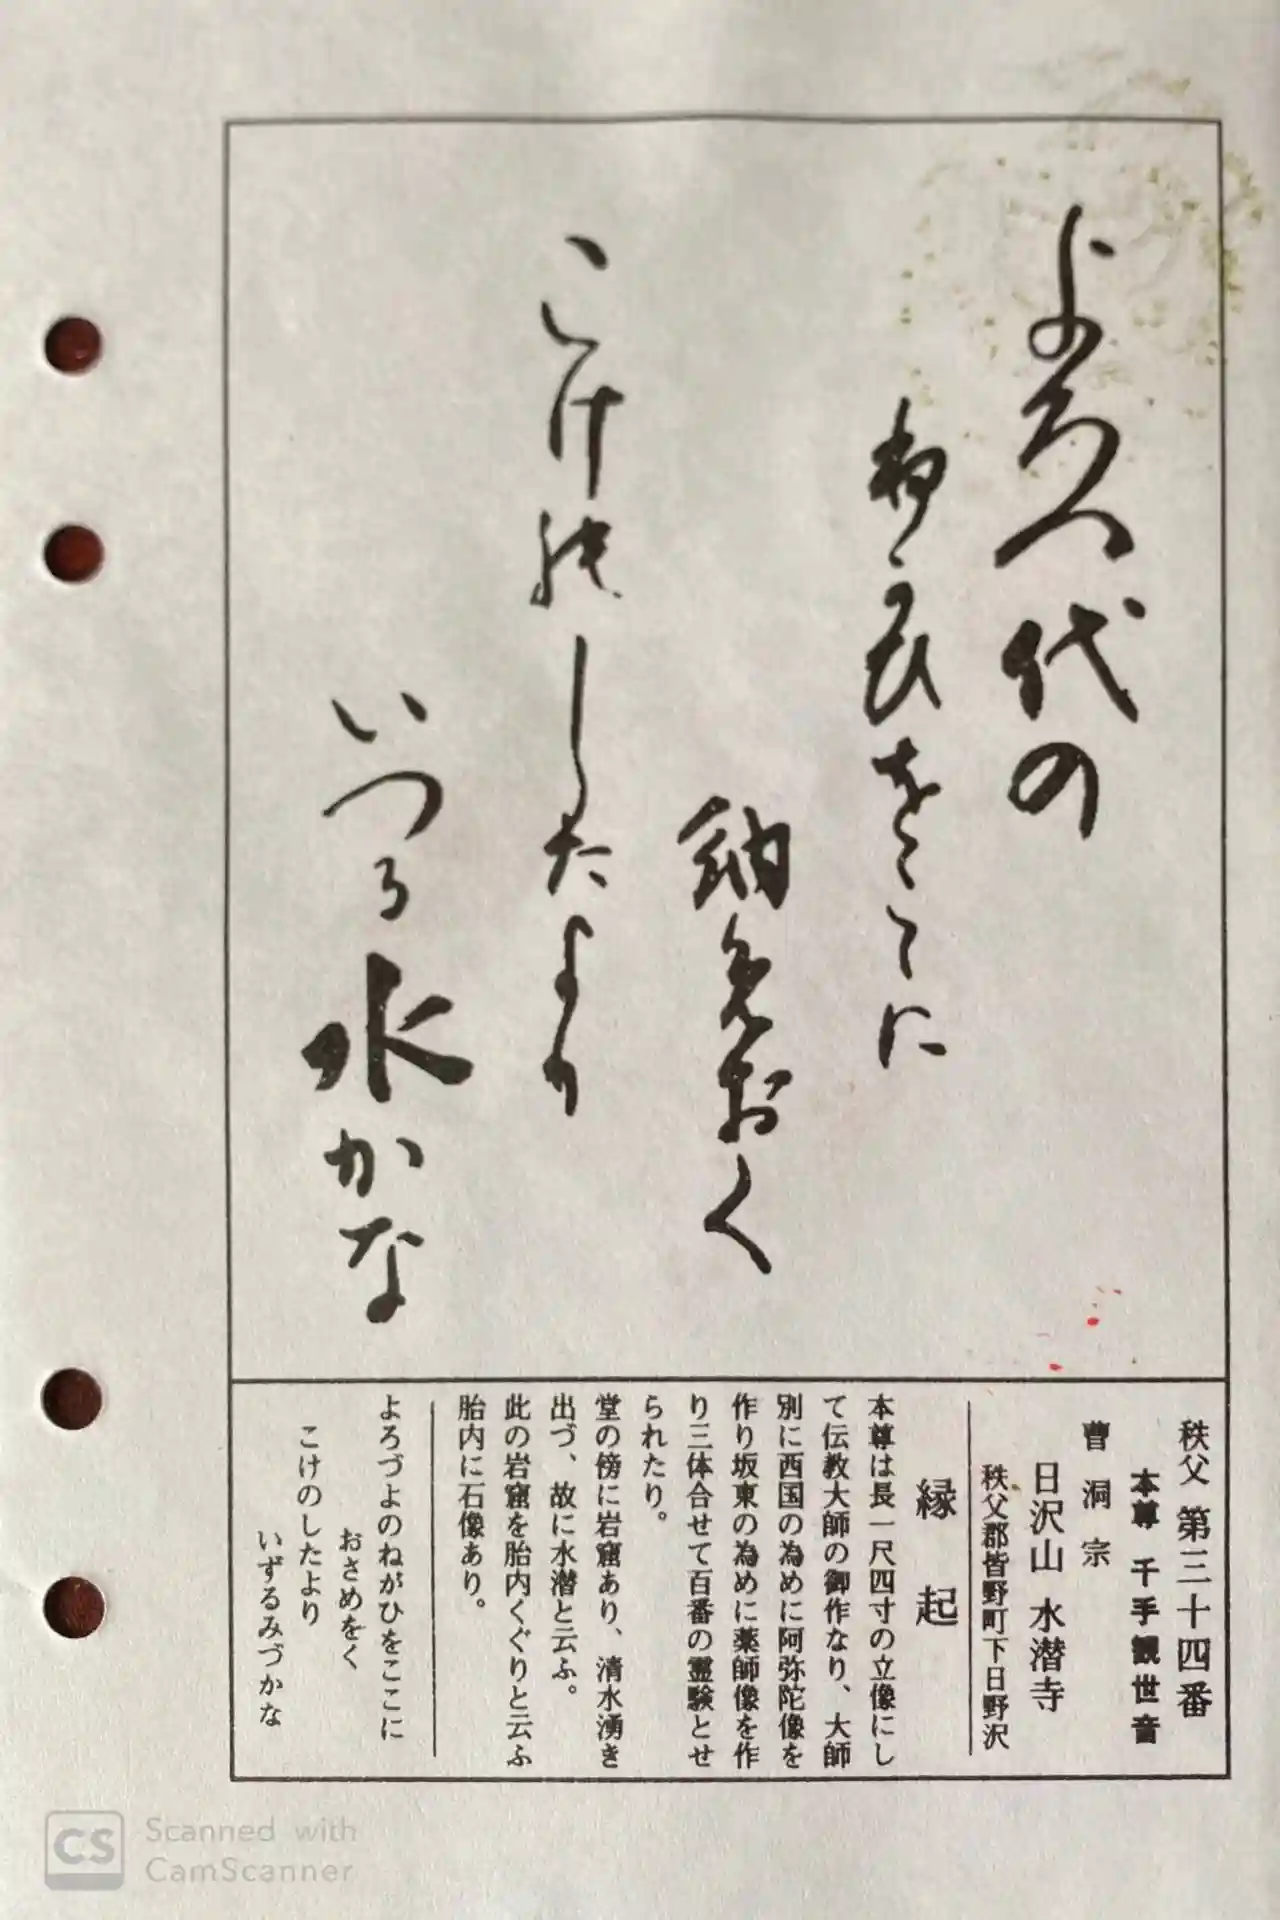 よろつ代の
ねかひをここに
納めおく
こけのしたより
いつる水かな
秩父 第三十四番
本尊 千手観世音
曹洞宗
日沢山 水潜寺
秩父郡皆野町下日野沢
縁起
本尊は長一尺四寸の立像にし
て伝教大師の御作なり、大師
別に西国の為めに阿弥陀像を
作り坂東の為めに薬師像を作
り三体合せて百番の霊験とせ
られたり。
堂の傍に岩窟あり、清水湧き
出づ、故に水潜と云ふ。
此の岩窟を胎内くぐりと云ふ
胎内に石像あり。
よろづよのねがひをここに
おさめをく
こけのしたより
いずるみづかな
CS Scanned with
CamScanner